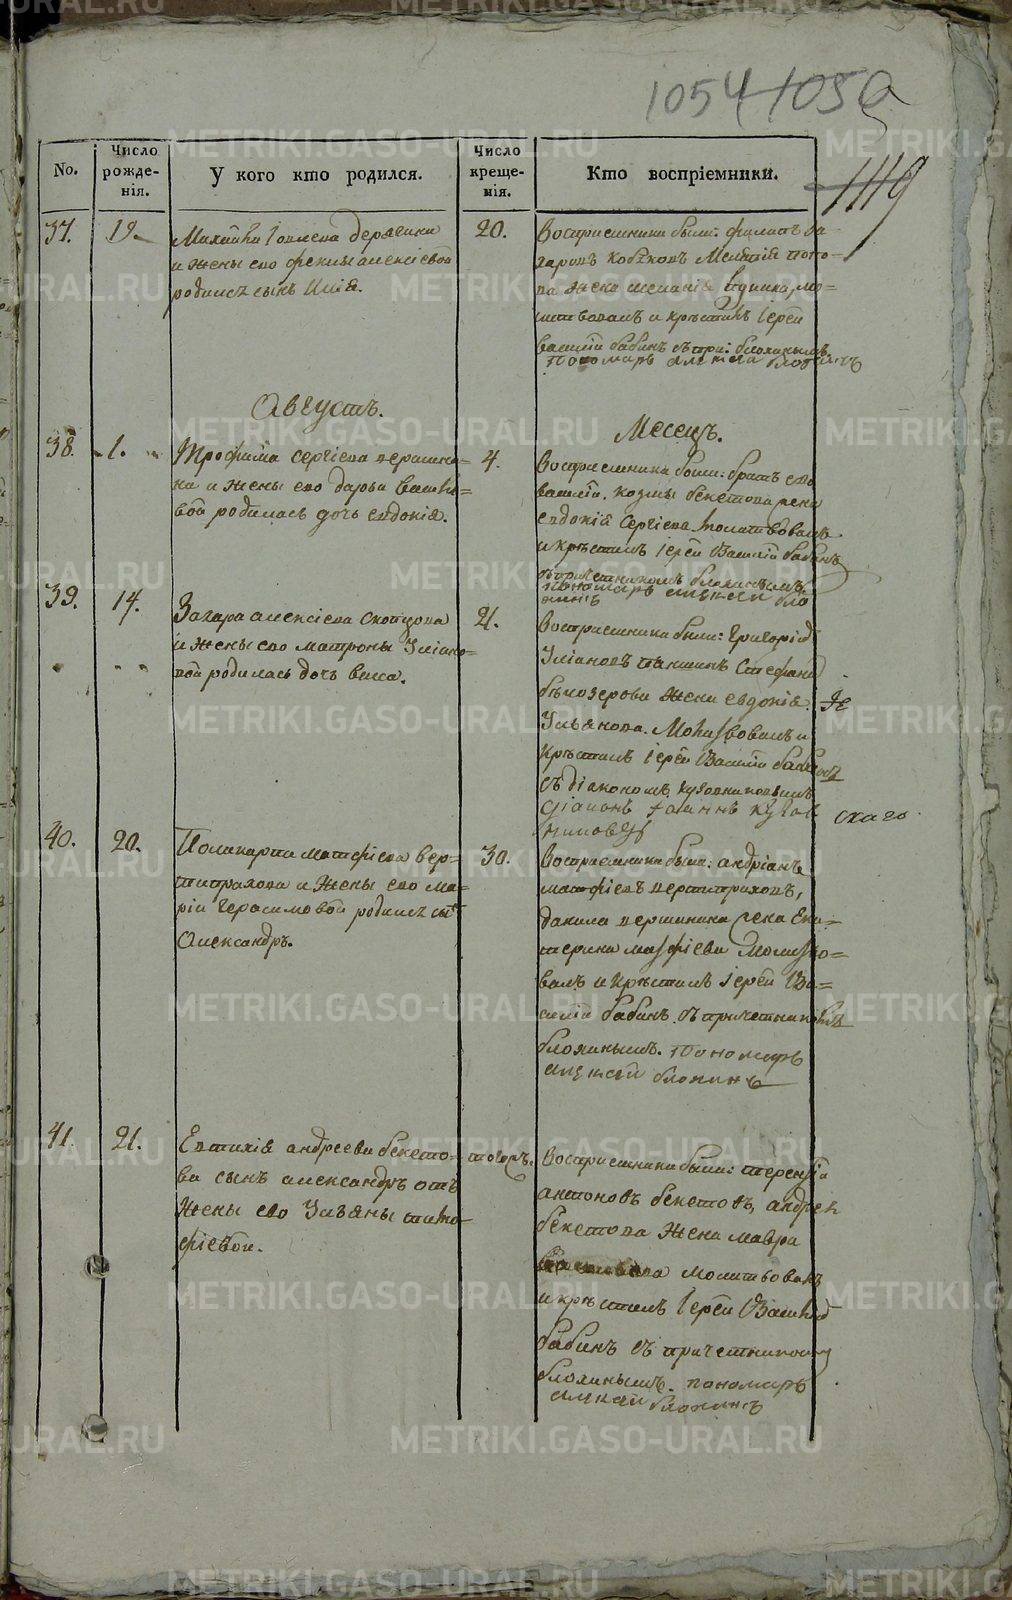 1054 1050
119
No.
Число рожде- нія.
У кого кто родился.
Число креще- нія.
Кто воспріемники.
37.
19.
и жены его феклы алексіевой
родился сынъ Илія.
20.
Воспріемники были: филипъ За-
харовъ
жена
и крѣстилъ Іерей
василій бабинъ съ при: блохинымъ
пономарь алексей блохинъ
Августъ.
Месецъ.
38.
1.
Трофима сергіева вершини-
на и жены его дарьи василі-
вой родилась дочь евдокія.
4.
Воспріемники были: братъ его
василій. козмы бекетова
евдокія Сергіева молитвовалъ
и крѣстилъ Іерей Василій бабинъ
съ причетникомъ блохинымъ
пономарь алексей бло
хинъ
39.
14.
Захара алексіева скопцова
и жены его матроны Уліано-
вой родилась дочь васса.
21.
Воспріемники были: Григорій
Уліановъ паншинъ Стефана
бѣлозерова жена евдокія
Ульянова. Молитвовалъ и
крѣстилъ Іерей Василій бабинъ
съ діакономъ кузовниковымъ
діаконъ Іоаннъ кузов
никовъ
скаго
40.
20.
Поликарпа матфіева вер-
типрахова и жены его ма-
ріи Герасимовой родился сынъ
Александръ.
30.
Воспріемники были: андріанъ
матфіевъ вертипраховъ,
данила вершинина жена Ека-
терина матфіева Молитво-
валъ и крѣстилъ Іерей Ва-
силій бабинъ съ причетникомъ
блохинымъ. Пономарь
алексей блохинъ
41.
21.
Евтихія андреева бекето-
ва сынъ александръ отъ
жены его Ульяны тимо-
фіевой.
тогожъ.
Воспріемники были: терентій
антоновъ бекетовъ, андрея
бекетова жена мавра
молитвовалъ
и крѣстилъ Іерей Василій
бабинъ съ причетникомъ
блохинымъ. пономарь
алексей блохинъ
METRIKI.GASO-URAL.RU